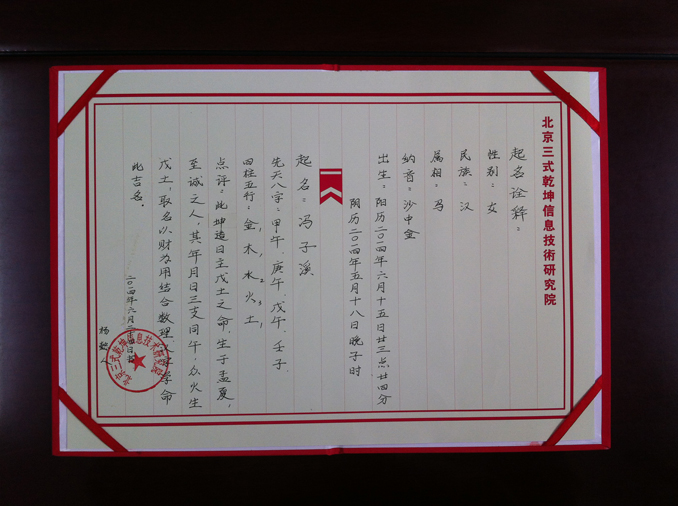 北京三式乾坤信息技術研究院
起名诠释：
性别：女
民族：汉
属相：马
纳音：沙中金
出生：阳历二〇一四年六月十五日廿三点廿四分
阴历二〇一四年五月十八日晚子时
起名：冯子溪
先天八字：甲午、庚午、戊午、壬子
四柱五行：金1 木1 水2 火3 土1
点评：此坤造日主戊土之命，生于孟夏，
至诚之人，其年月日三支同午，众火生
戊土，取名以财为用结合数理、学命
此吉名。
二〇一四年六月二
杨
北京三式乾坤信息技术研究院